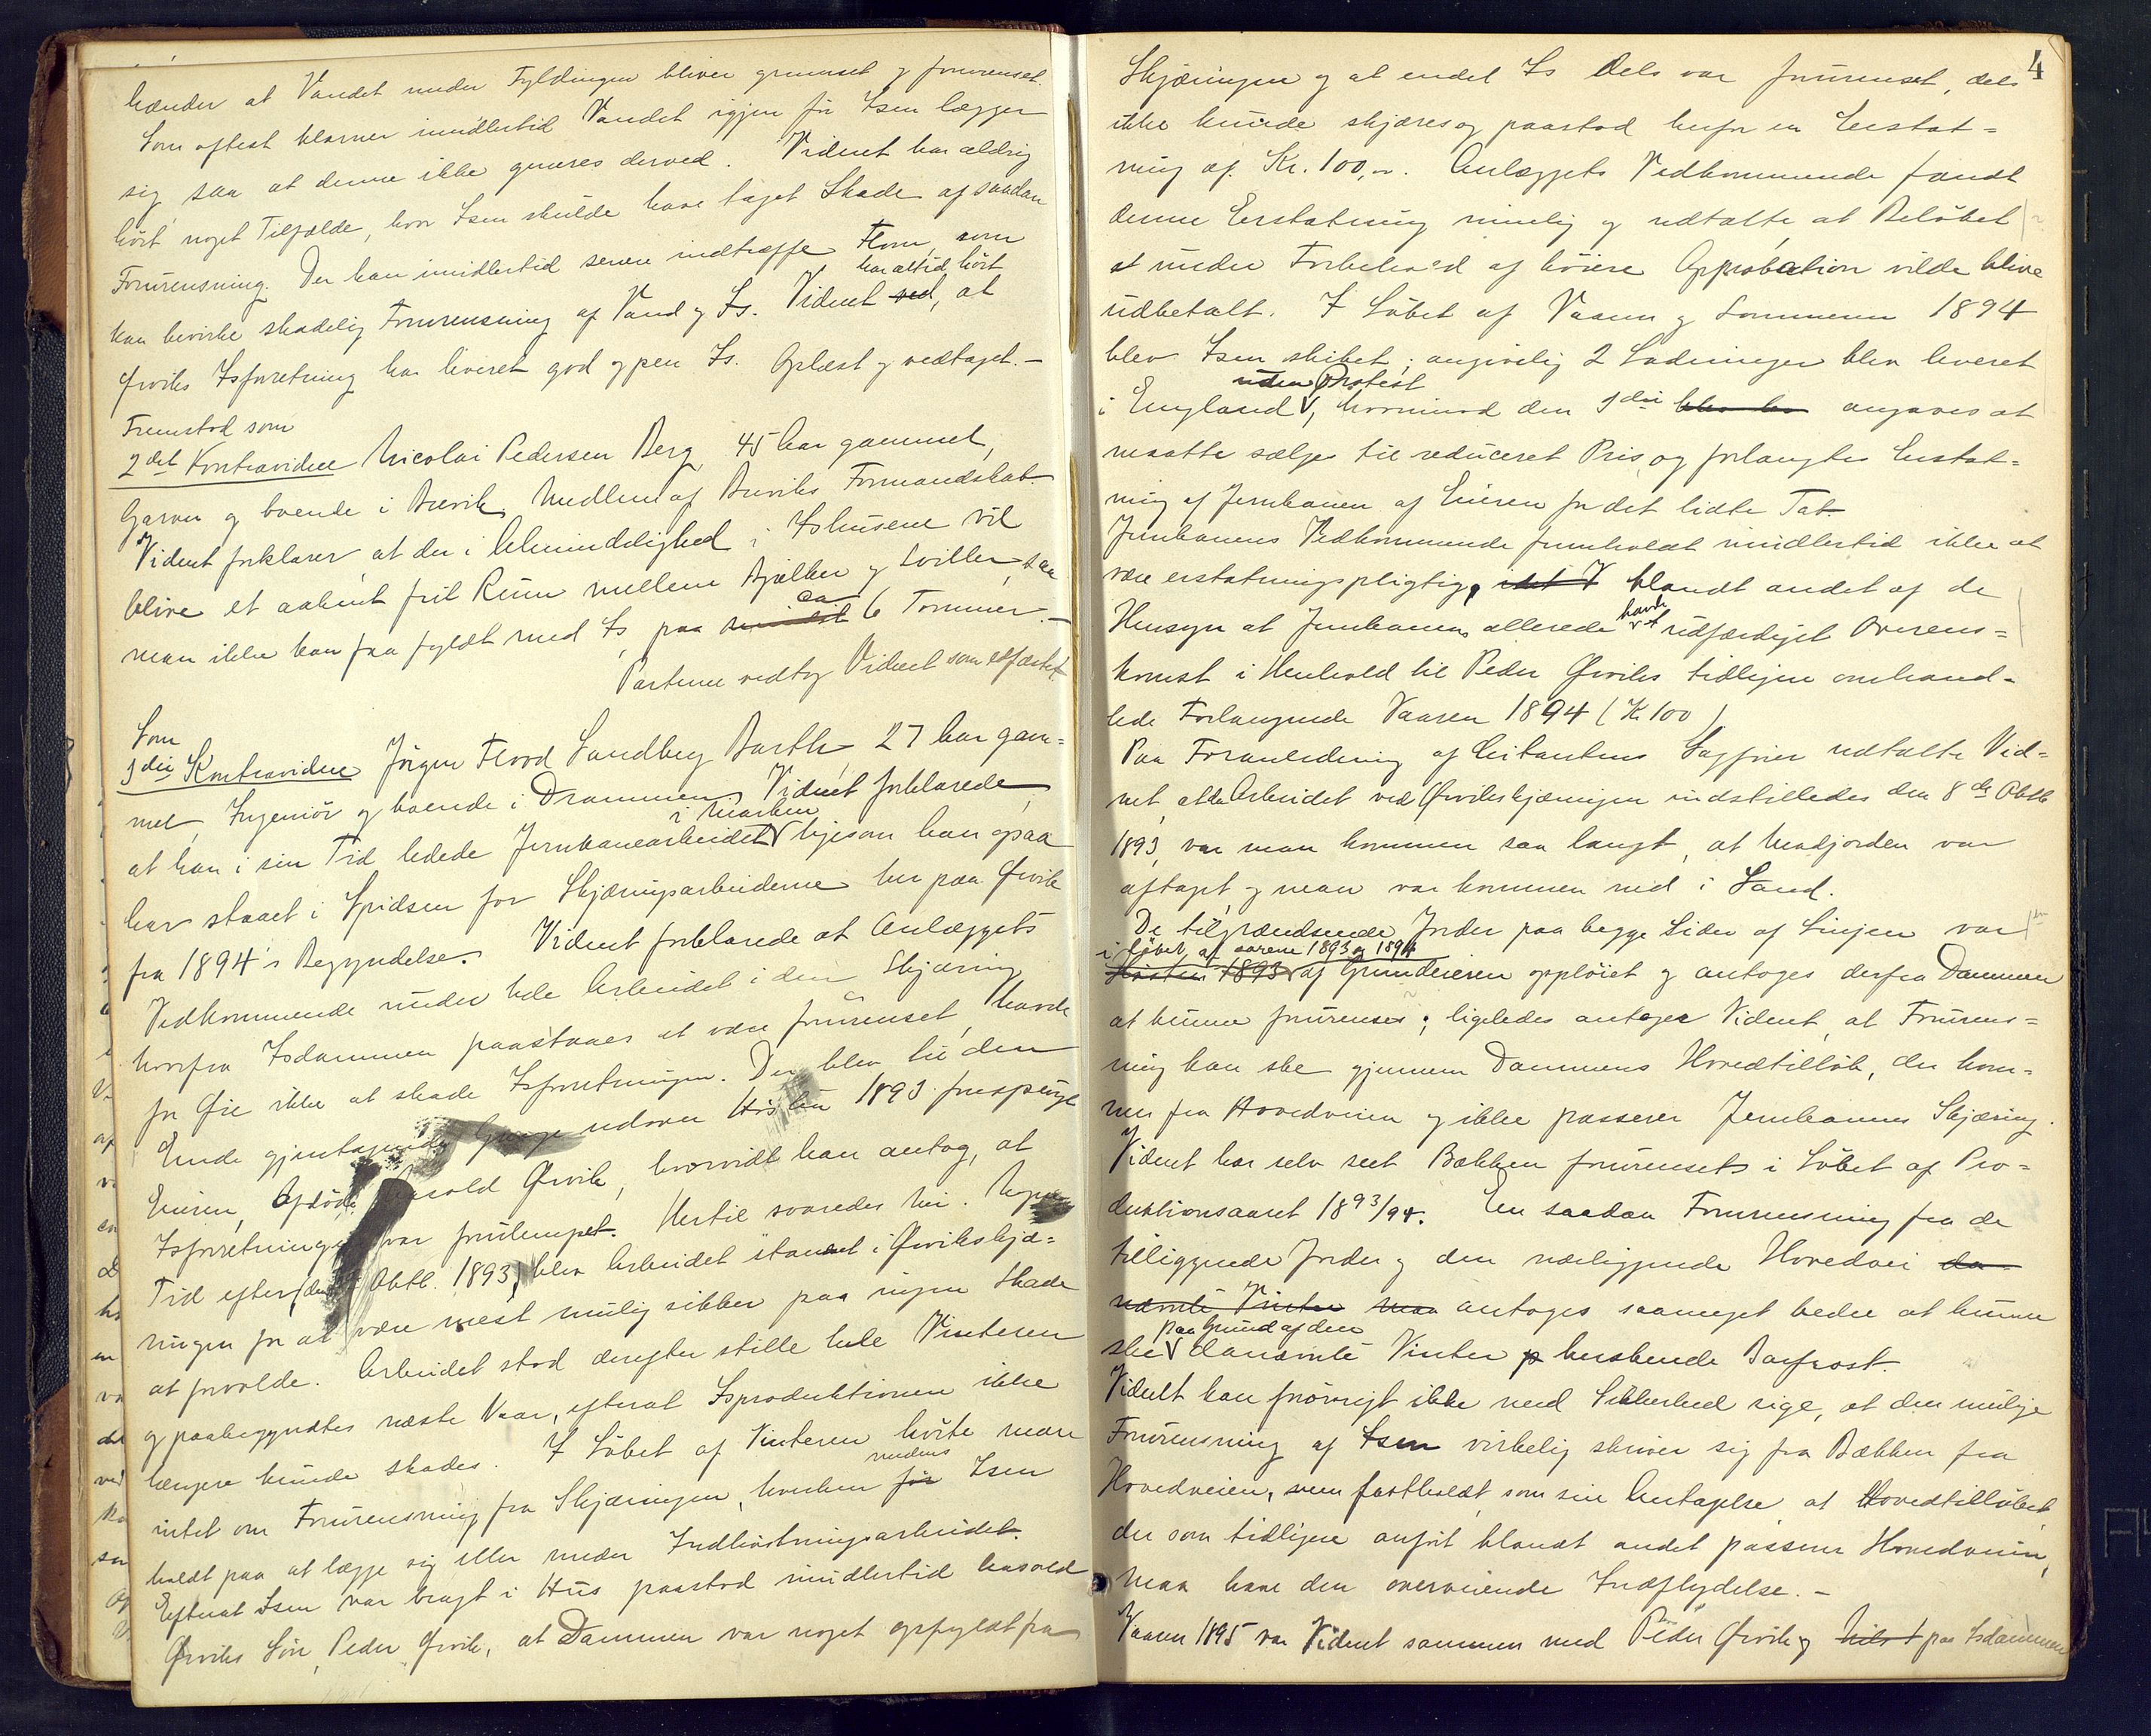 hænder at Vandet under Fyldingen bliver grumset og forurenset.
Som oftest klarner imidlertid Vandet igjen før Isen lægger
sig, saa at denne ikke generes derved. Vidnet har aldrig
hørt noget Tilfælde, hvor Isen skulde have taget Skade af saadan
Forurensning. Der kan imidlertid senere indtræffe Flom, som
kan bevirke skadelig Forurensning af Vand og Is. Vidnet ved, har altid hørt at
Ørviks Isforretning har leveret god og pen Is. Oplæst og vedtaget. –
Fremstod som
2det Kontravidne Nicolai Pedersen Berg 45 Aar gammel,
Garver og boende i Brevik, Medlem af Breviks Formandskab.
Vidnet forklarer at der i Almindelighed i Ishusene vil
blive et aabent frit Rum mellem Bjælker og Sviller, saa
man ikke kan faa fyldt med Is, paa ca 6 Tommer. –
Parterne vedtog Vidnet som edfæstet.
Som
3die Kontravidne Jørgen Flood Sandberg Barth, 27 Aar gam=
mel, Ingeniør og boende i Drammen. Vidnet forklarede,
at han i sin Tid ledede Jernbanearbeidet i Marken ligesom han ogsaa
har staaet i Spidsen for Skjæringsarbeiderne her paa Ørvik
fra 1894's Begyndelse. Vidnet forklarede at Anlæggets
Vedkommende under hele Arbeidet i den Skjæring
hvorfra Isdammen paastaaes at være forurenset, havde
for Øie ikke at skade Isforretningen. Der blev til den
Ende gjentagende Gange udover Høsten 1893 forespurgt
Eieren, Afdøde Harald Ørvik, hvorvidt han antog, at
Isforretningen var forulempet. Hertil svaredes nei. Nogen
Tid efter (den Oktb. 1893) blev Arbeidet standset i Ørvikskjæ=
ringen for at være mest mulig sikker paa ingen Skade
at forvolde. Arbeidet stod derefter stille hele Vinteren
og paabegyndtes næste Vaar, efterat Isproduktionen ikke
længere kunde skades. I Løbet af Vinteren hørte man
intet om Forurensning fra Skjæringen, hverken før medens Isen
holdt paa at lægge sig eller under Indhøstningsarbeidet.
Efterat Isen var bragt i Hus paastod imidlertid Harald
Ørviks Søn, Peder Ørvik, at Dammen var noget opfyldt fra
4
Skjæringen og at endel Is dels var forurenset, dels
ikke kunde skjæres og paastod herfor en Erstat=
ning af Kr. 100,–. Anlæggets Vedkommende fandt
denne Erstatning rimelig og udtalte, at Beløbet
under Forbehold af høiere Approbation vilde blive
udbetalt. I Løbet af Vaaren og Sommeren 1894
blev Isen skibet; angivelig 2 Ladninger blev leveret
i England uden Protest, hvorimod den 3die angaves at
maatte sælges til reduceret Pris, og forlangtes Erstat=
ning af Jernbanen af Eieren for det lidte Tab.
Jernbanens Vedkommende fremholdt imidlertid ikke at
være erstatningspligtig, blandt andet af de
Hensyn at Jernbanen allerede havde udfærdiget Overens=
komst i Henhold til Peder Ørviks tidligere omhand=
lede Forlangende Vaaren 1894 (Kr 100)
Paa Foranledning af Citantens Sagfører udtalte Vid=
net, at da Arbeidet ved Ørvikskjæringen indstilledes den 8de Oktb
1893, var man kommen saa langt, at Madjorden var
aftaget, og man var kommen ned i Sand.
De tilgrændsende Jorder paa begge Sider af Linjen var
i Løbet af aarene 1893 og 1894
Høsten 1893 af Grundeieren oppløiet og antoges derfra Dammen
at kunne forurenses; ligeledes antager Vidnet, at Forurens=
ning kan ske gjennem Dammens Hovedtilløb, der kom=
mer fra Hovedveien og ikke passerer Jernbanens Skjæring.
Vidnet har selv seet Bækken forurenset i Løbet af Pro=
duktionsaaret 1893/94. En saadan Forurensning fra de
tilliggende Jorder og den nærliggende Hovedvei da
nævnte Vinter maa antoges saameget bedre at kunne
ske paa Grund af den danævnte Vinter herskende Barfrost.
Vidnet kan forøvrigt ikke med Sikkerhed sige, at den mulige
Forurensning af Isen virkelig skriver sig fra Bækken fra
Hovedveien, men fastholdt som sin Antagelse at Hovedtilløbet,
der som tidligere anført blandt andet passerer Hovedveien,
maa have den overveiende Indflydelse. –
Vaaren 1895 var Vidnet sammen med Peder Ørvik og paa Isdammen